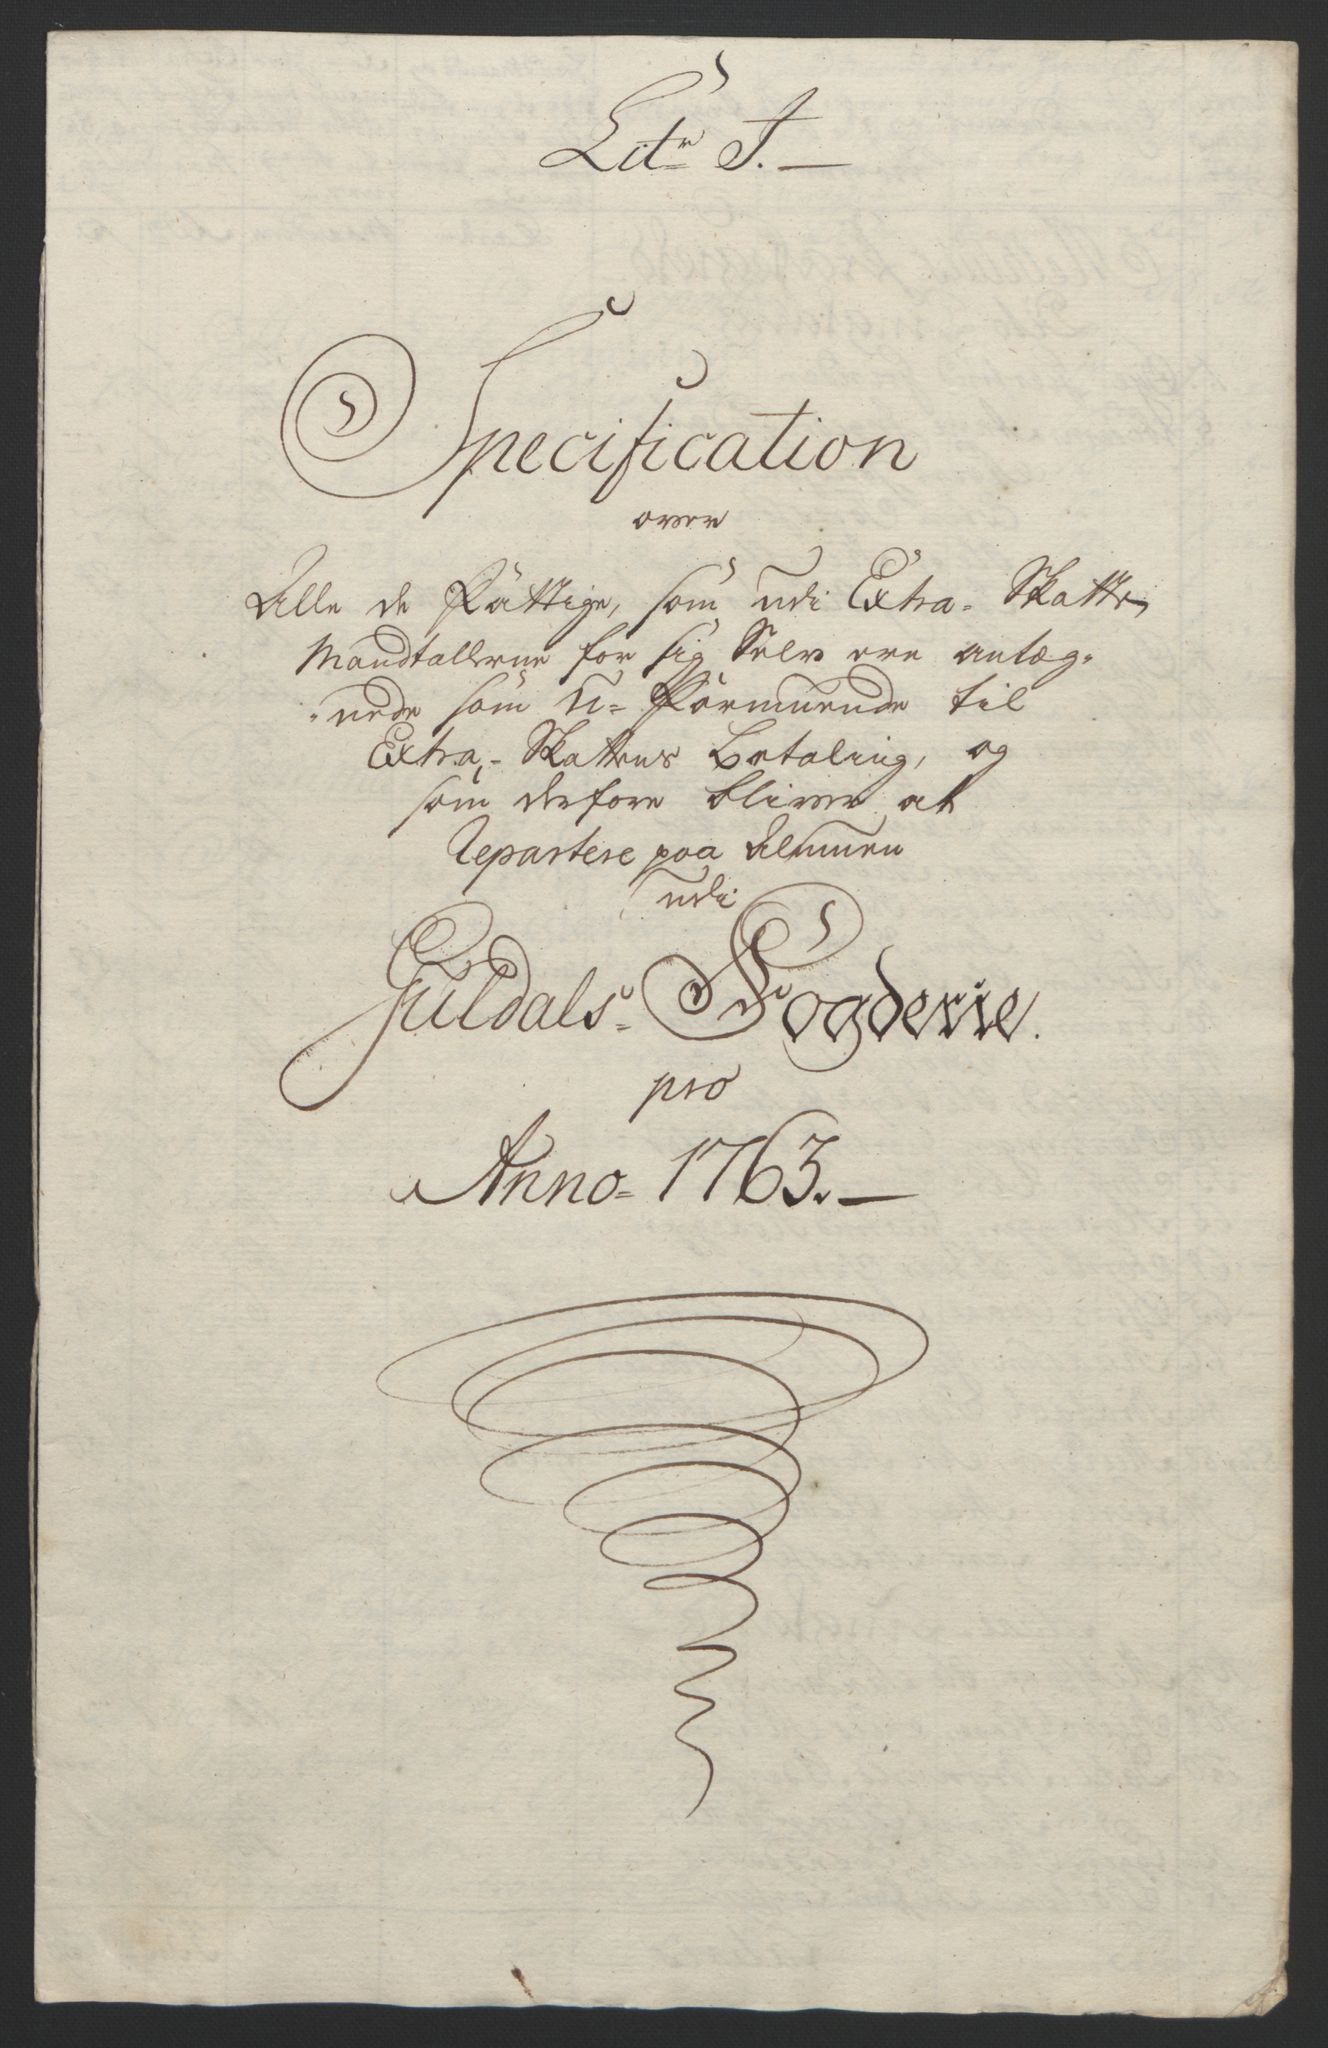 Litr J.
Specification
over
Alle de Fattige, som udi Extra-Skatte
Mandtallerne for sig Selv ere antæg-
-nede som U-Formuende til
Extra-Skattens Betaling, og
som derfore bliver at
Repartere paa Almuen
udi
Guldals Fogderie.
pro
Anno 1763.